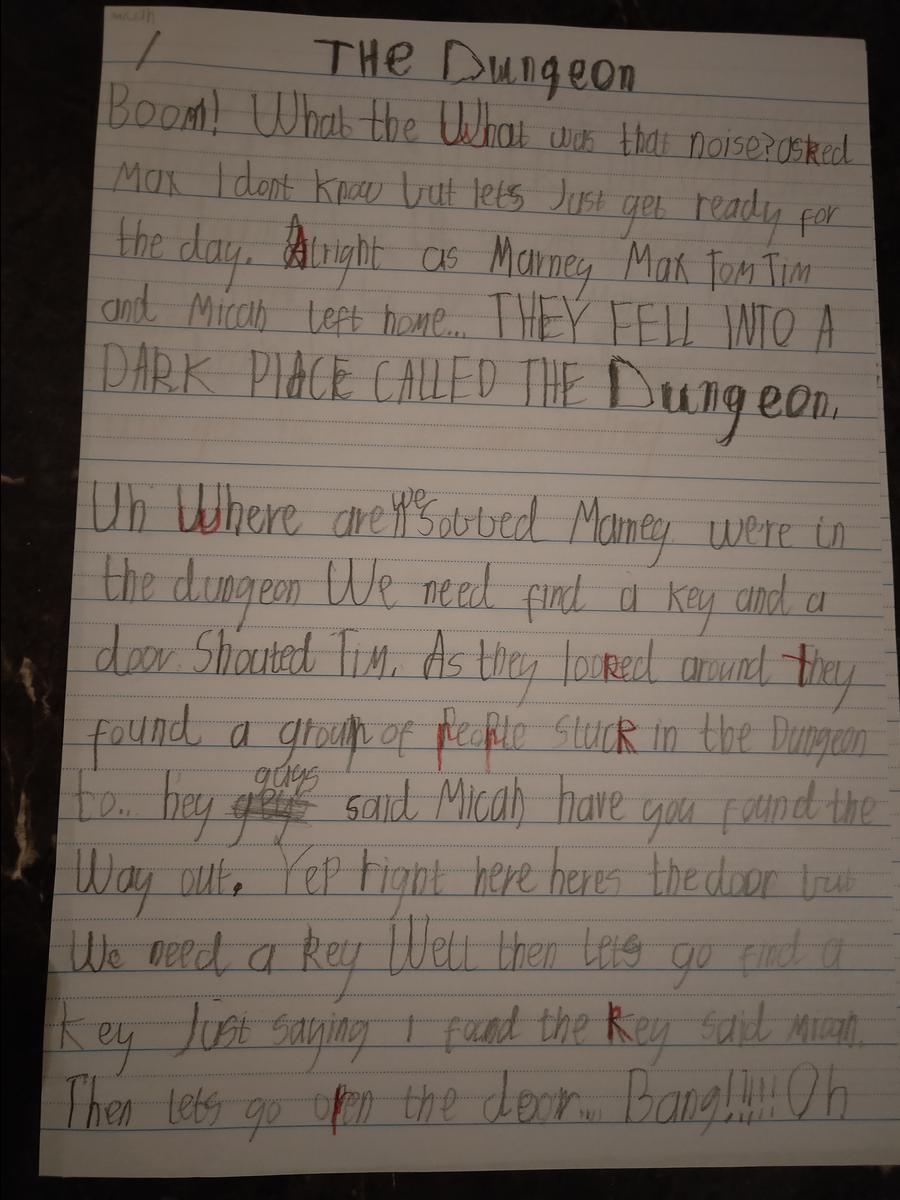 micah
/ THE Dungeon
Boom! What the What was that noise? asked
Max I dont know but lets Just get ready for
the day. Alright as Marney Max Tom Tim
and Micah left home... THEY FELL INTO A
DARK PlACE CALLED THE Dungeon.
Uh Where are we Sobbed Marney were in
the dungeon We need find a key and a
door Shouted Tim. As they looked around they
found a group of people stuck in the Dungeon
to.. hey guys said Micah have you found the
Way out. Yep right here heres the door but
We need a key Well then lets go find a
key Just saying I found the key said micah.
Then lets go open the door.... Bang!!!!!! Oh